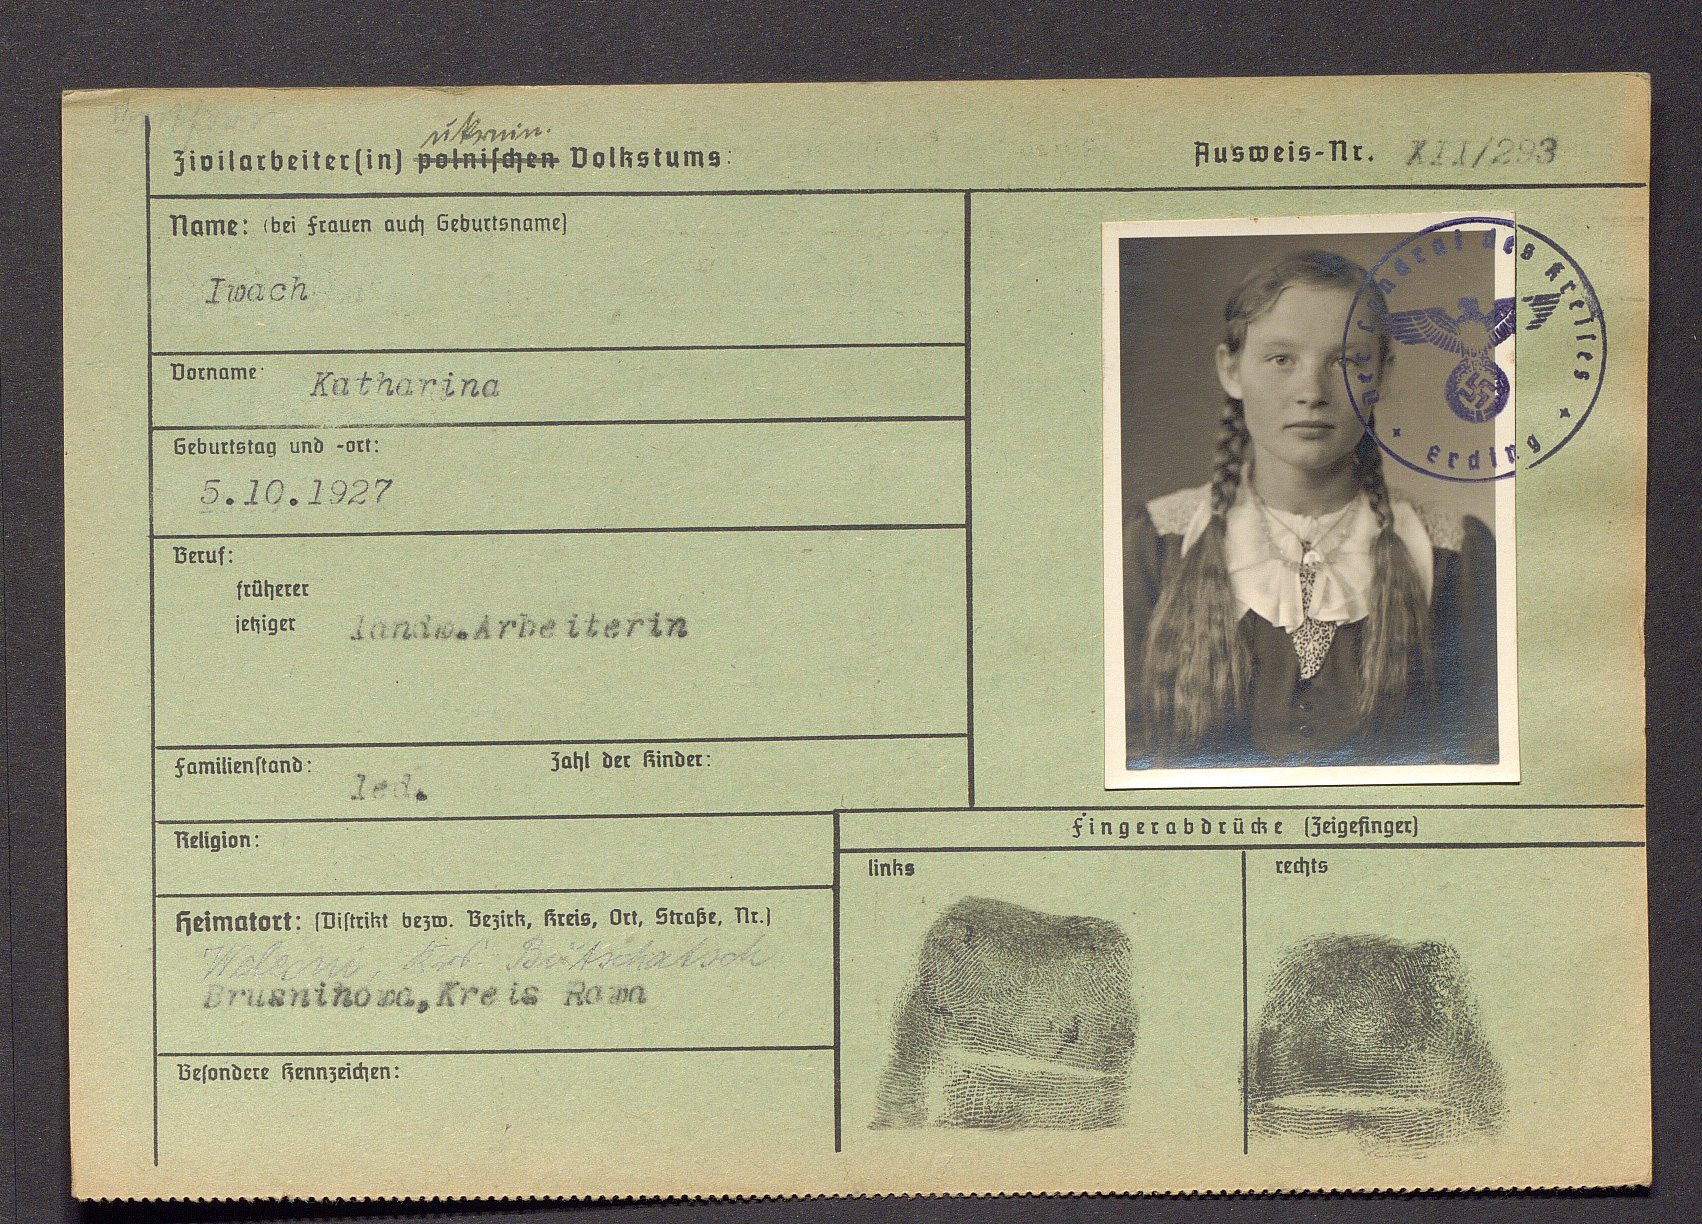 ukrain.
Zivilarbeiter(in) polnischen Volkstums:
Ausweis-Nr. XII/293
Name: (bei Frauen auch Geburtsname)
Iwach
Vorname: Katharina
Geburtstag und -ort:
5.10.1927
Beruf:
früherer
jetziger landw.Arbeiterin
Familienstand: led. Zahl der Kinder:
Religion:
Heimatort: (Distrikt bezw. Bezirk, Kreis, Ort, Straße, Nr.)
Butschatsch
Brusninowa,Kreis Rawa
Besondere Kennzeichen:
Der Landrat des Kreises
* Erding *
Fingerabdrücke (Zeigefinger)
links
rechts